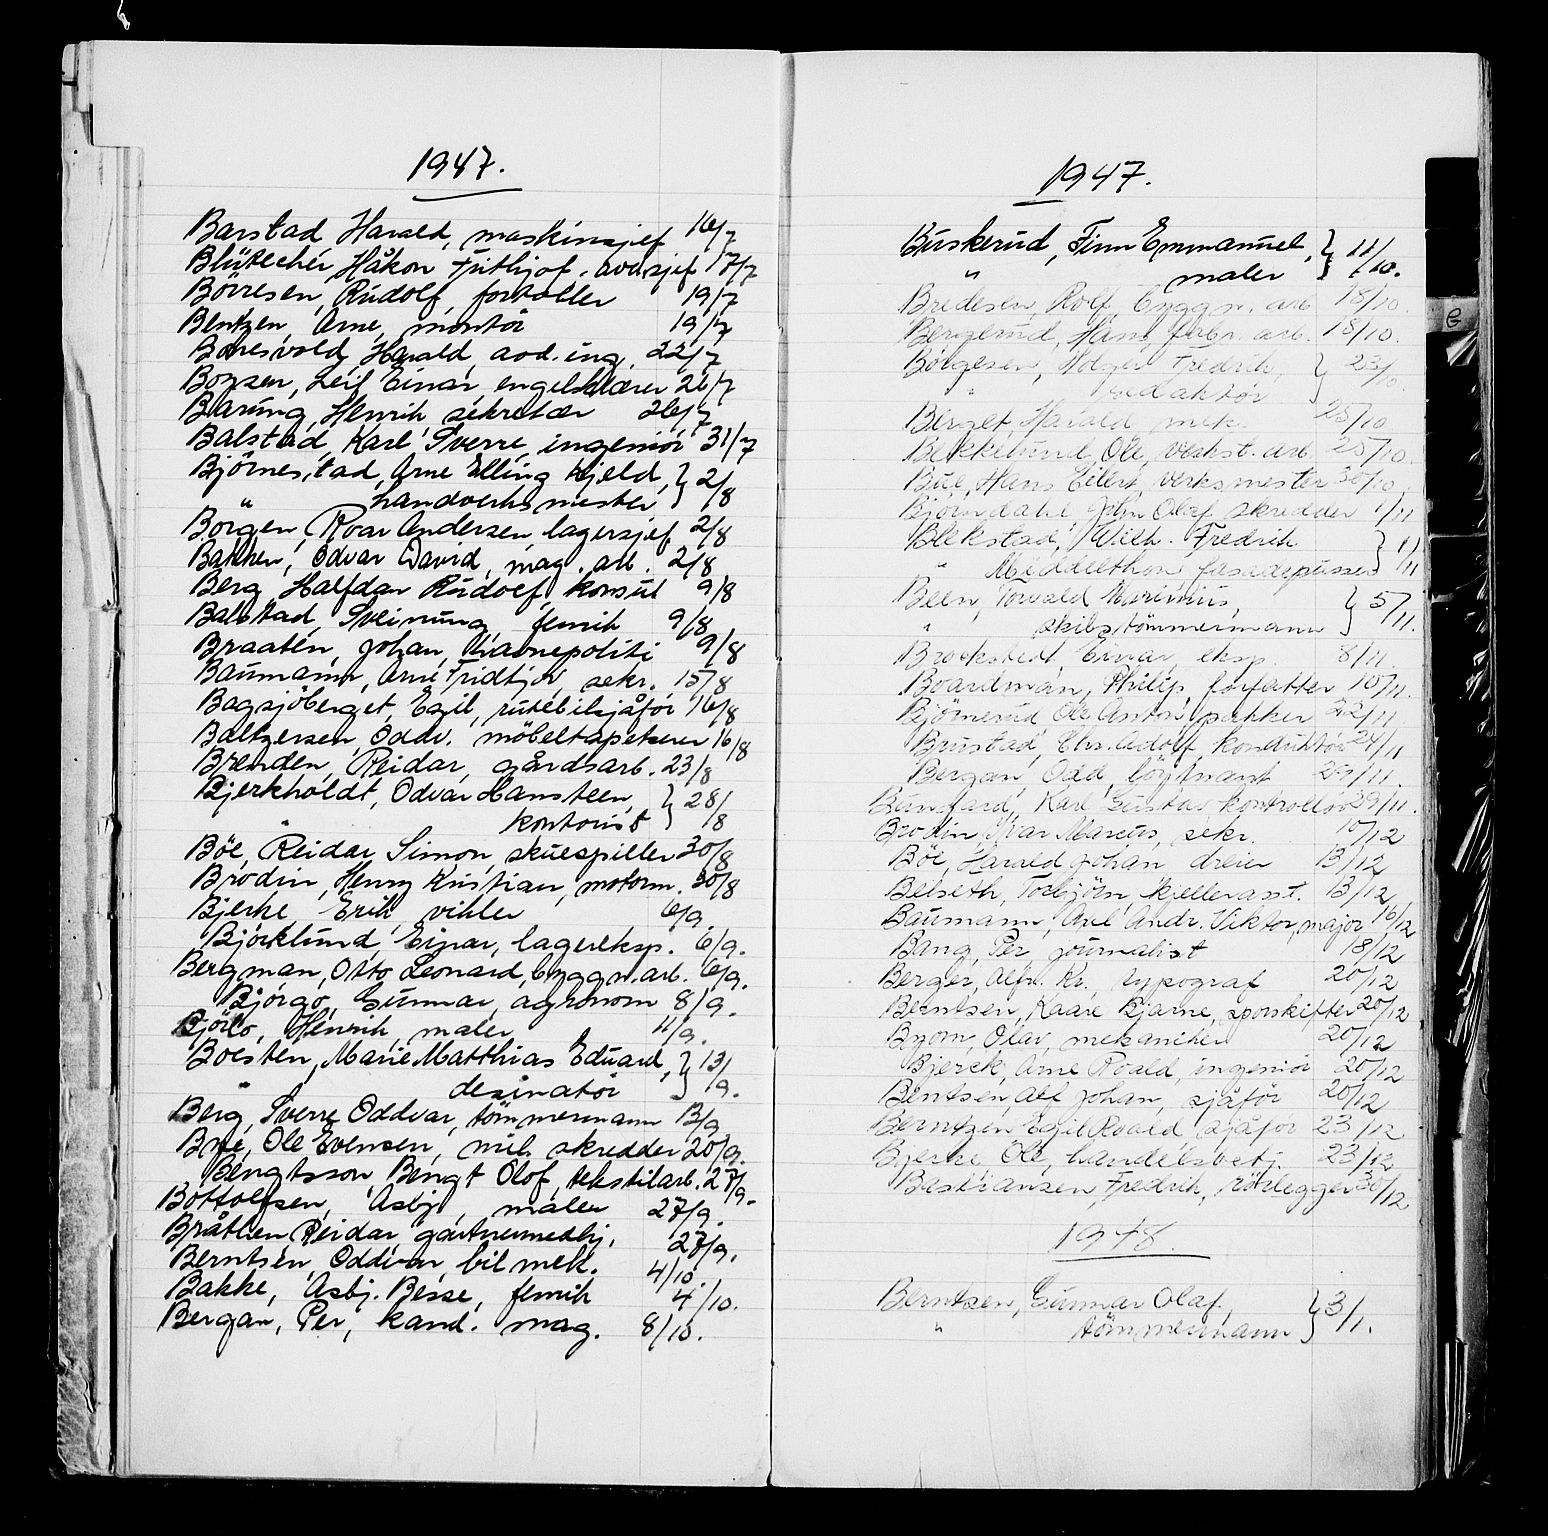 1947.
Barstad, Harald, maskinsjef 16/7
Blütecher, Håkon Frithjof, avd.sjef 17/7
Börresen, Rudolf, forteller 19/7
Bentzen, Arne, montör 19/7
Harald, avd. ing. 22/7
Boysen, Leif Einar, engelsklærer 26/7
Barung, Henrik sekretær 26/7
Balstad, Karl Sverre, ingeniör 31/7
Björnestad, Arne Elling Kjeld, } 2/8
" handverksmester
Borgen, Roar Andersen, lagersjef 2/8
Bakken, Odvar David, mag. arb. 2/8
Berg, Halfdan Rudolf, konsul 9/8
Balstad, Sveinung, fenrik 9/8
Braaten, Johan, havnepoliti 9/8
Baumann, Arne Fridtjov, sekr. 15/8
Bagsjöberget, Egil, rutebilsjåför 16/8
Baltzersen, Oddv. möbeltapetserer 16/8
Brenden, Reidar, gårdsarb. 23/8
Bjerkholdt, Odvar Hansteen, } 28/8
" kontorist
Böe, Reidar Simon, skuespiller 30/8
Brodin, Henry Kristian, motorm. 30/8
Bjerke, Erik, vikler 6/9
Björklund, Einar, lagereksp. 6/9.
Bergman, Otto Leonard, byggn.arb. 6/9.
Björgo, Gunnar, agronom 8/9.
Henrik, maler 11/9.
Boesten, Marie Matthias Eduard, } 13/9.
" desinatör
Berg, Sverre Oddvar, tömmermann 13/9
Ole Evensen, mil. skredder 20/9.
Bengtsson, Bengt Olof, tekstilarb. 27/9.
Bottolfsen, Asbj., maler 27/9.
Bråthen Reidar gartnermedhj. 27/9.
Berntsen, Oddvar, bil mek. 4/10.
Bakke, Asbj. Besse, fenrik 4/10.
Bergan, Per, kand. mag. 8/10.
1947.
Buskerud, Finn Emmanuel, } 11/10.
" maler
Bredesen, Rolf, byggn. arb. 18/10.
Bergerud, Hans, fabr. arb. 18/10.
Börgesen, Holger Fredrik, } 23/10.
" redaktör
Berget Harald mek. 25/10
Bekkelund, Ole, verkst. arb. 25/10.
Bue, Hans Eilert, verksmester 30/10.
Björndahl, John Olaf skredder 1/11
Blekstad, Wilh. Fredrik } 1/11
" Middelthon, fasadepusser
Been, Torvald Marinius, } 5/11.
" skibstömmermann
Brockstedt, Einar, eksp. 8/11.
Boardman, Philip, forfatter 10/11.
Björnerud Ole Anton pakker 22/11.
Brustad, Chr. Adolf konduktör 24/11
Bergan, Odd, löytnant 29/11.
Karl Gustav, kontrollör 29/11.
Brodin, Ivar Marcus, sekr. 10/12
Böe, Harald Johan dreier 13/12
Belseth, Torbjörn, kjellerasst. 13/12
Baumann, Axel Andr. Viktor, major 16/12
Bang, Per, journalist 18/12
Berger, Alfr. Kr., typograf 20/12
Berntsen, Kaare Bjarne, sporskifter 20/12
Byom, Olav, mekaniker 20/12
Bjerck, Arne Roald, ingeniör 20/12
Bentsen, Alf Johan, sjåför 20/12
Berntzen Egil Roald, sjåför 23/12
Bjerke, Ole, handelsbetj. 23/12
Bastiansen, Fredrik, rörlegger 30/12
1948.
Berntsen, Gunnar Olaf, } 3/1.
" tömmermann